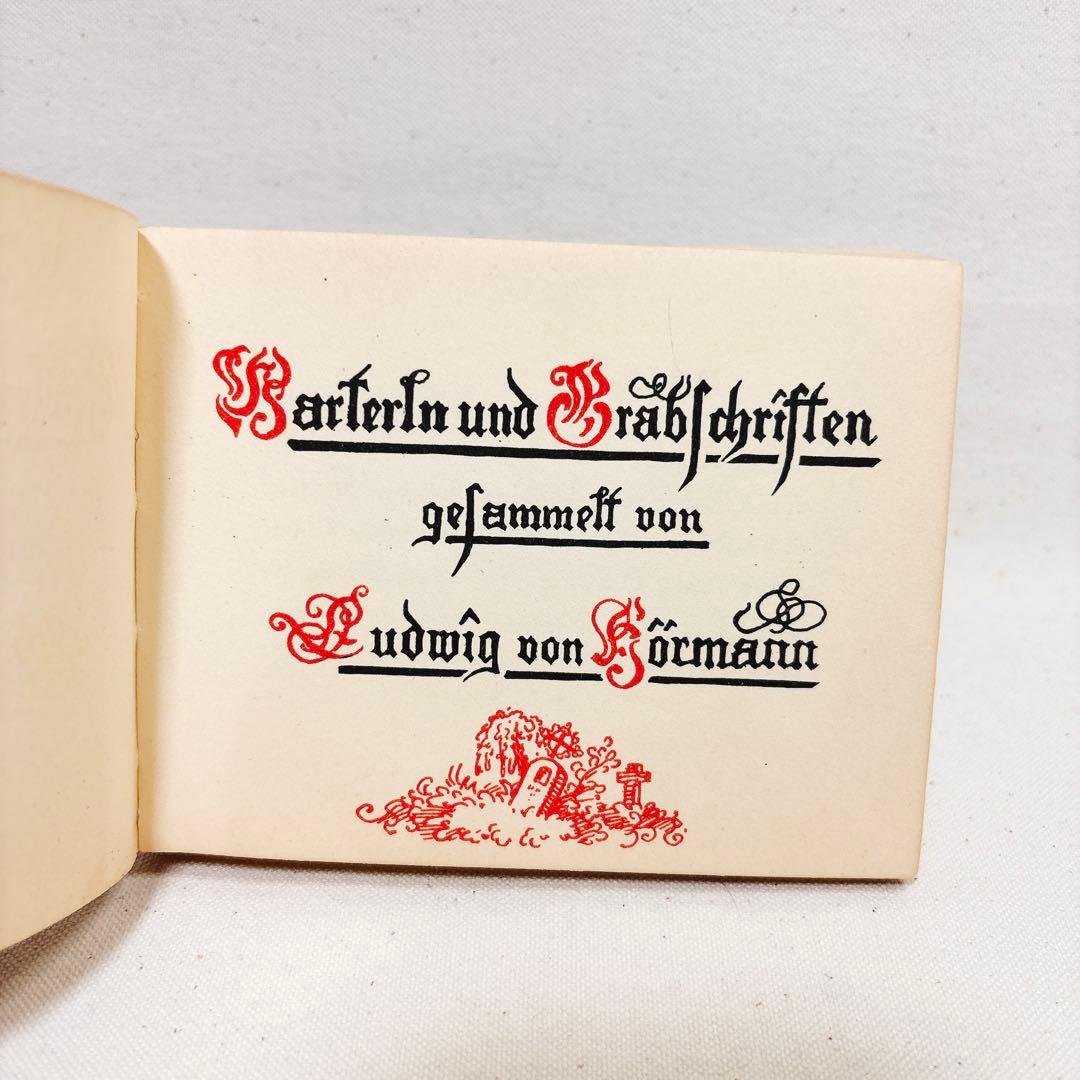 Marterln und Grabschriften
gesammelt von
Ludwig von Hörmann